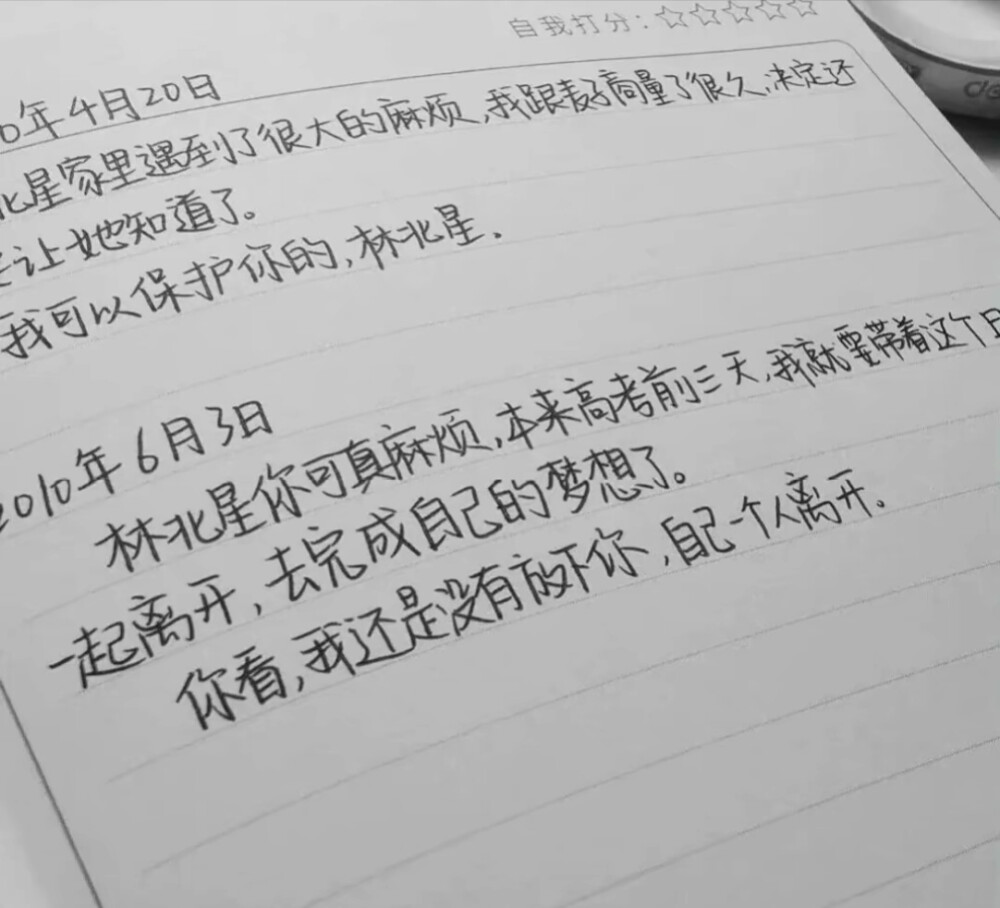 自我打分:☆☆☆☆☆
0年4月20日
北星家里遇到了很大的麻烦,我跟麦子商量了很久,决定还
让她知道了。
我可以保护你的,林北星.
2010年6月3日
林北星你可真麻烦,本来高考前三天,我就要带着这个
一起离开,去完成自己的梦想了。
你看,我还是没有放下你,自己一个人离开。